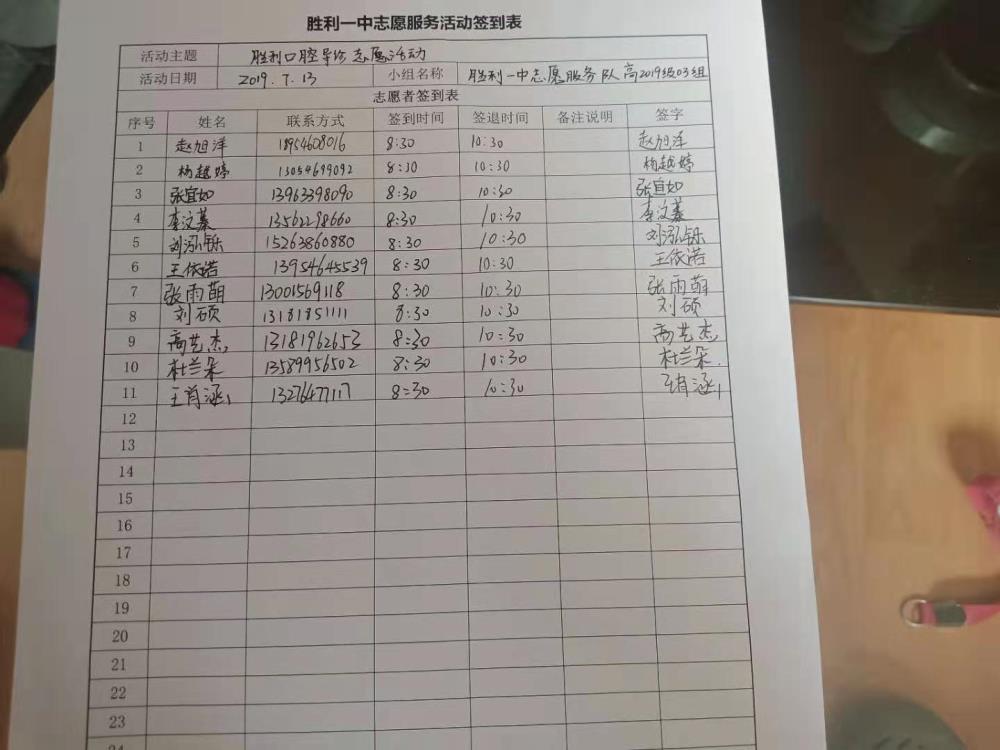 胜利一中志愿服务活动签到表
活动主题 胜利口腔导诊志愿活动
活动日期 2019.7.13 小组名称 胜利一中志愿服务队高2019级03组
志愿者签到表
序号 姓名 联系方式 签到时间 签退时间 备注说明 签字
1 赵旭洋 18954608016 8:30 10:30 赵旭洋
2 杨越婷 13054699092 8:30 10:30 杨越婷
3 张宜如 13963398090 8:30 10:30 张宜如
4 李汶蓁 13562298660 8:30 10:30 李汶蓁
5 刘泓铄 15263860880 8:30 10:30 刘泓铄
6 王依诺 13954645539 8:30 10:30 王依诺
7 张雨萌 13001569118 8:30 10:30 张雨萌
8 刘硕 13181851111 8:30 10:30 刘硕
9 高艺杰 13181962653 8:30 10:30 高艺杰
10 杜兰朵 13589956502 8:30 10:30 杜兰朵
11 王肖涵 13276477117 8:30 10:30 王肖涵
12
13
14
15
16
17
18
19
20
21
22
23
24